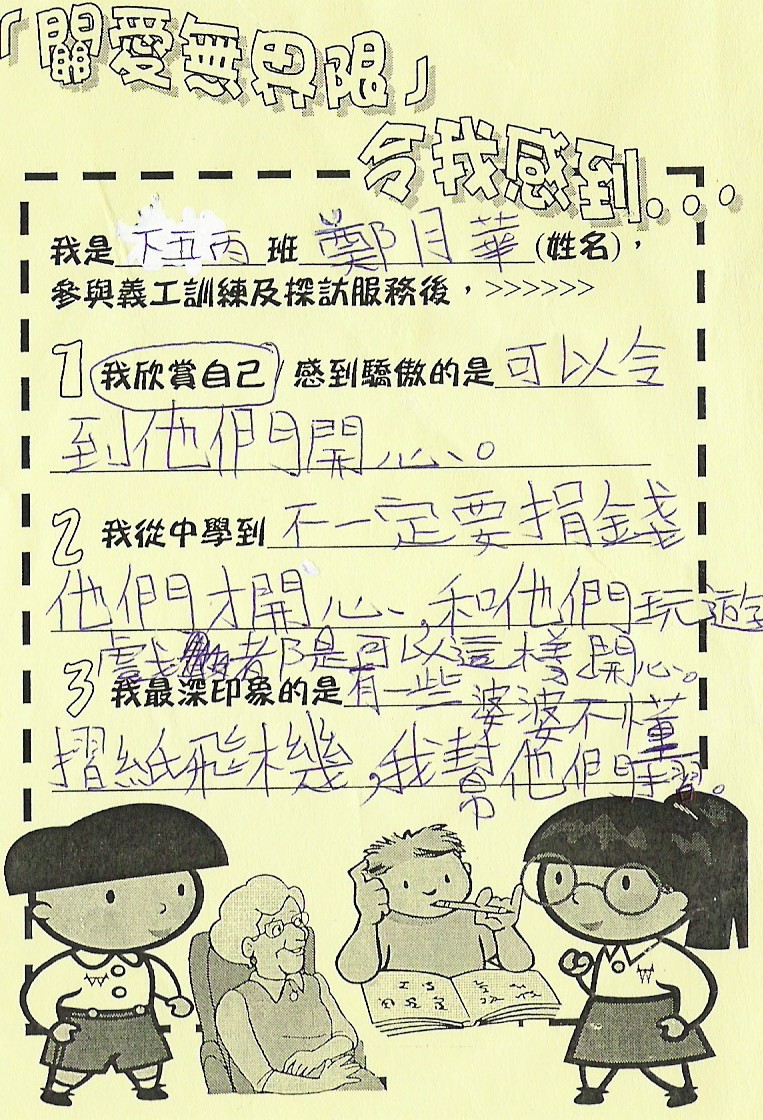 「關愛無界限」
令我感到...
我是下五丙班鄭月華(姓名),
參與義工訓練及探訪服務後,>>>>>>
1 我欣賞自己/感到驕傲的是可以令
到他們開心。
2 我從中學到不一定要捐錢
他們才開心,和他們玩遊
戲都是可以這樣開心。
3 我最深印象的是有一些婆婆不懂
摺紙飛機,我幫他們摺。